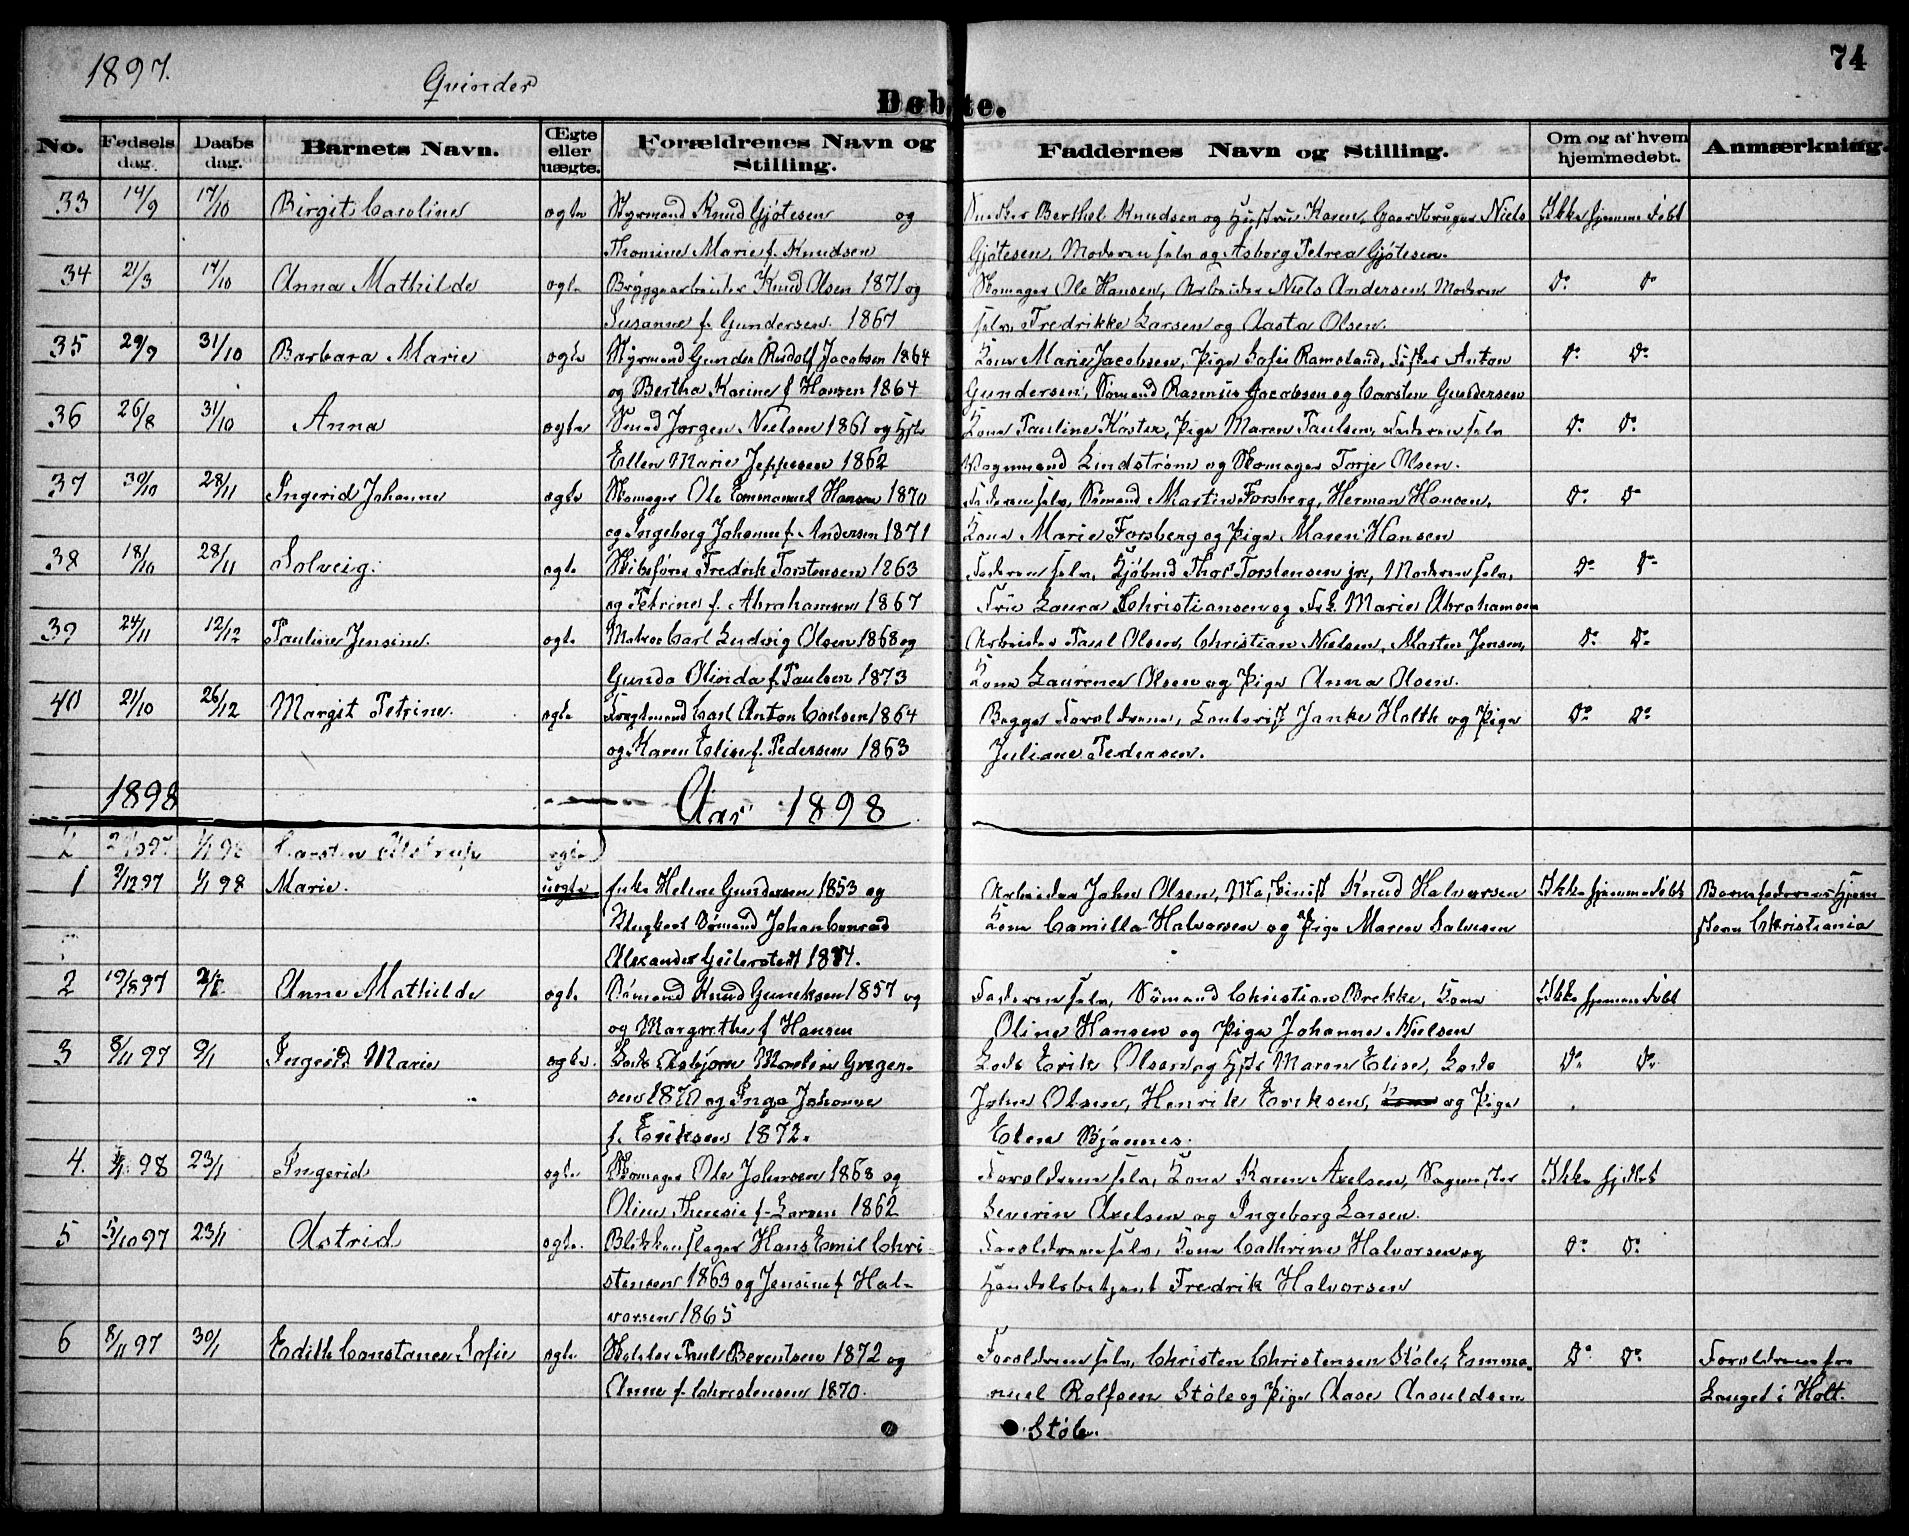 1897.
Qvinder
Døbte.
74
No. Fødsels dag. Daabs dag. Barnets Navn. Ægte eller uægte. Forældrenes Navn og Stilling. Faddernes Navn og Stilling. Om og af hvem hjemmedøbt. Anmærkning.
33 14/9 17/10 Birgit Caroline ægte Styrmand Knud Gjøtesen og Snedker Berthel Knudsen og Hustru Karen, Gaardbruger Niels Ikke hjemmedøbt
Thomine Marie f. Knudsen Gjøtesen, Moderen selv og Asborg Petrea Gjøtesen.
34 21/3 17/10 Anna Mathilde ægte Bryggearbeider Knud Olsen 1871 og Skomager Ole Hansen, Arbeider Niels Andersen, Moderen Do Do
Susanne f. Gundersen 1867 selv, Fredrikke Larsen og Aasta Olsen.
35 29/9 31/10 Barbara Marie ægte Styrmand Gunder Rudolf Jacobsen 1864 Kone Marie Jacobsen, Pige Sofie Ramsland, Anton Do Do
og Bertha Karine f Hansen 1864 Gundersen, Sømand Rasmus Jacobsen og Carsten Gundersen
36 26/8 31/10 Anna ægte Jørgen Nielsen 1861 og Kone Pauline Køster, Pige Maren Paulsen, Faderen selv Do Do
Ellen Marie Jeppesen 1862 Vognmand Lindstrøm og Skomager Torje Olsen.
37 30/10 28/11 Ingerid Johanne ægte Skomager Ole Emmanuel Hansen 1870 Faderen selv, Sømand Martin Forsberg, Herman Hansen, Do Do
og Ingeborg Johanne f. Andersen 1871 Kone Marie Forsberg og Pige Maren Hansen
38 18/10 28/11 Solveig. ægte Skibsfører Fredrik Torstensen 1863 Faderen selv, Kjøbmd Thor Torstensen jr, Moderen selv, Do Do
og Petrine f. Abrahamsen 1867 Laura Christiansen og Marie Abrahamsen
39 24/11 12/12 Pauline Jensine. ægte Matros Carl Ludvig Olsen 1868 og Arbeider Paul Olsen, Christian Nielsen, Morten Jensen, Do Do
Gunda Olinda f. Paulsen 1873 Kone Laurence Olsen og Pige Anna Olsen.
40 21/10 26/12 Margit Petrine. ægte Carl Anton Carlsen 1864 Begge Forældrene, Janke Holth og Pige Do Do
og Karen Elise f. Pedersen 1863 Juliane Pedersen.
1898 Aar 1898
1/1 98 Carsten ægte
1 9/12 97 1/1 98 Marie. uægte Helene Gundersen 1853 og Arbeider John Olsen, Maskinist Knud Halvorsen Ikke hjemmedøbt Barnefaderens Hjem
Ungkarl Sømand Johan Conrad Kone Camilla Halvorsen og Pige Maren Salvesen Christiania
Alexander Geilerstedt 1874.
2 19/8 97 Anne Mathilde ægte Sømand Knud 1857 og Faderen selv, Sømand Christian Brekke, Kone Ikke hjemmedøbt
og Margrethe f Hansen Oline Hansen og Pige Johanne Nielsen
3 8/11 97 9/1 Ingerid Marie ægte. Lods Asbjørn Gregersen 1870 og Inga Johanne Lods Erik Olsen og Maren Elise, Lods Do Do
John Olsen, Henrik Eriksen, og Pige
f. Eriksen 1872. Elen Bjønnes.
4. 98 23/1 Ingerid ægte. Skomager Ole Johnsen 1868 og Forældrene selv, Kone Karen Axelsen, Ikke hjdøbt
Oline Theresie f. Larsen 1862 Severin Axelsen og Ingeborg Larsen.
5 5/10 97 23/1 Astrid ægte. Blikkenslager Hans Emil Chri- Forældrene selv, Kone Cathrine Halvorsen og Do Do
stensen 1863 og Jensine f Hal- Handelsbetjent Fredrik Halvorsen
vorsen 1865
6 8/11 97 30/1 Edith Constance Sofie ægte Paul Berentsen 1872 og Forældrene selv, Christen Christensen Støle, Emma- Do Do Forældrene fra
Anne f. Christensen 1870. nuel Rolfsen Støle og Pige Aase Aasuldsen Langet i Holt.
Støle.